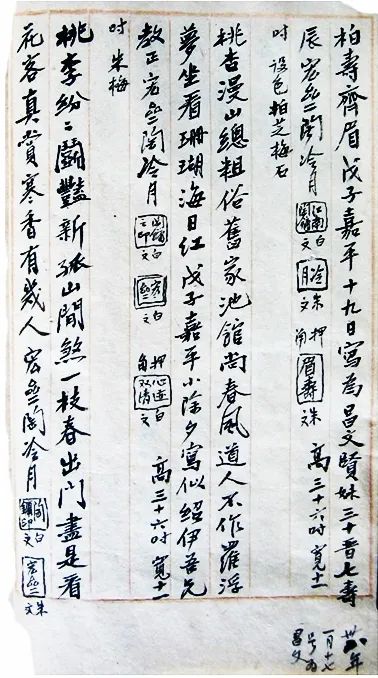 柏壽齊眉戊子嘉平十九日寫為昌文賢妹三十晉七壽
辰宏亝陶冷月 白文 冷月 朱文 押角 眉壽 朱文 高三十六吋寬十一
吋 设色柏芝梅石
桃杏漫山總粗俗舊家池館尚春風道人不作羅浮
夢坐看珊瑚海日紅戊子嘉平小除夕寫似紹伊吾兄
教正宏亝陶冷月 白文 宏亝 白文 押角 心迹双清 白文 高三十六吋寬十一
吋 朱梅
桃李紛々鬪豔新孤山閒煞一枝春出門盡是看
花客真賞寒香有幾人 宏亝陶冷月 陶鏞印 白文 宏亝 朱文
卅八年
一月十七
号为
昌文